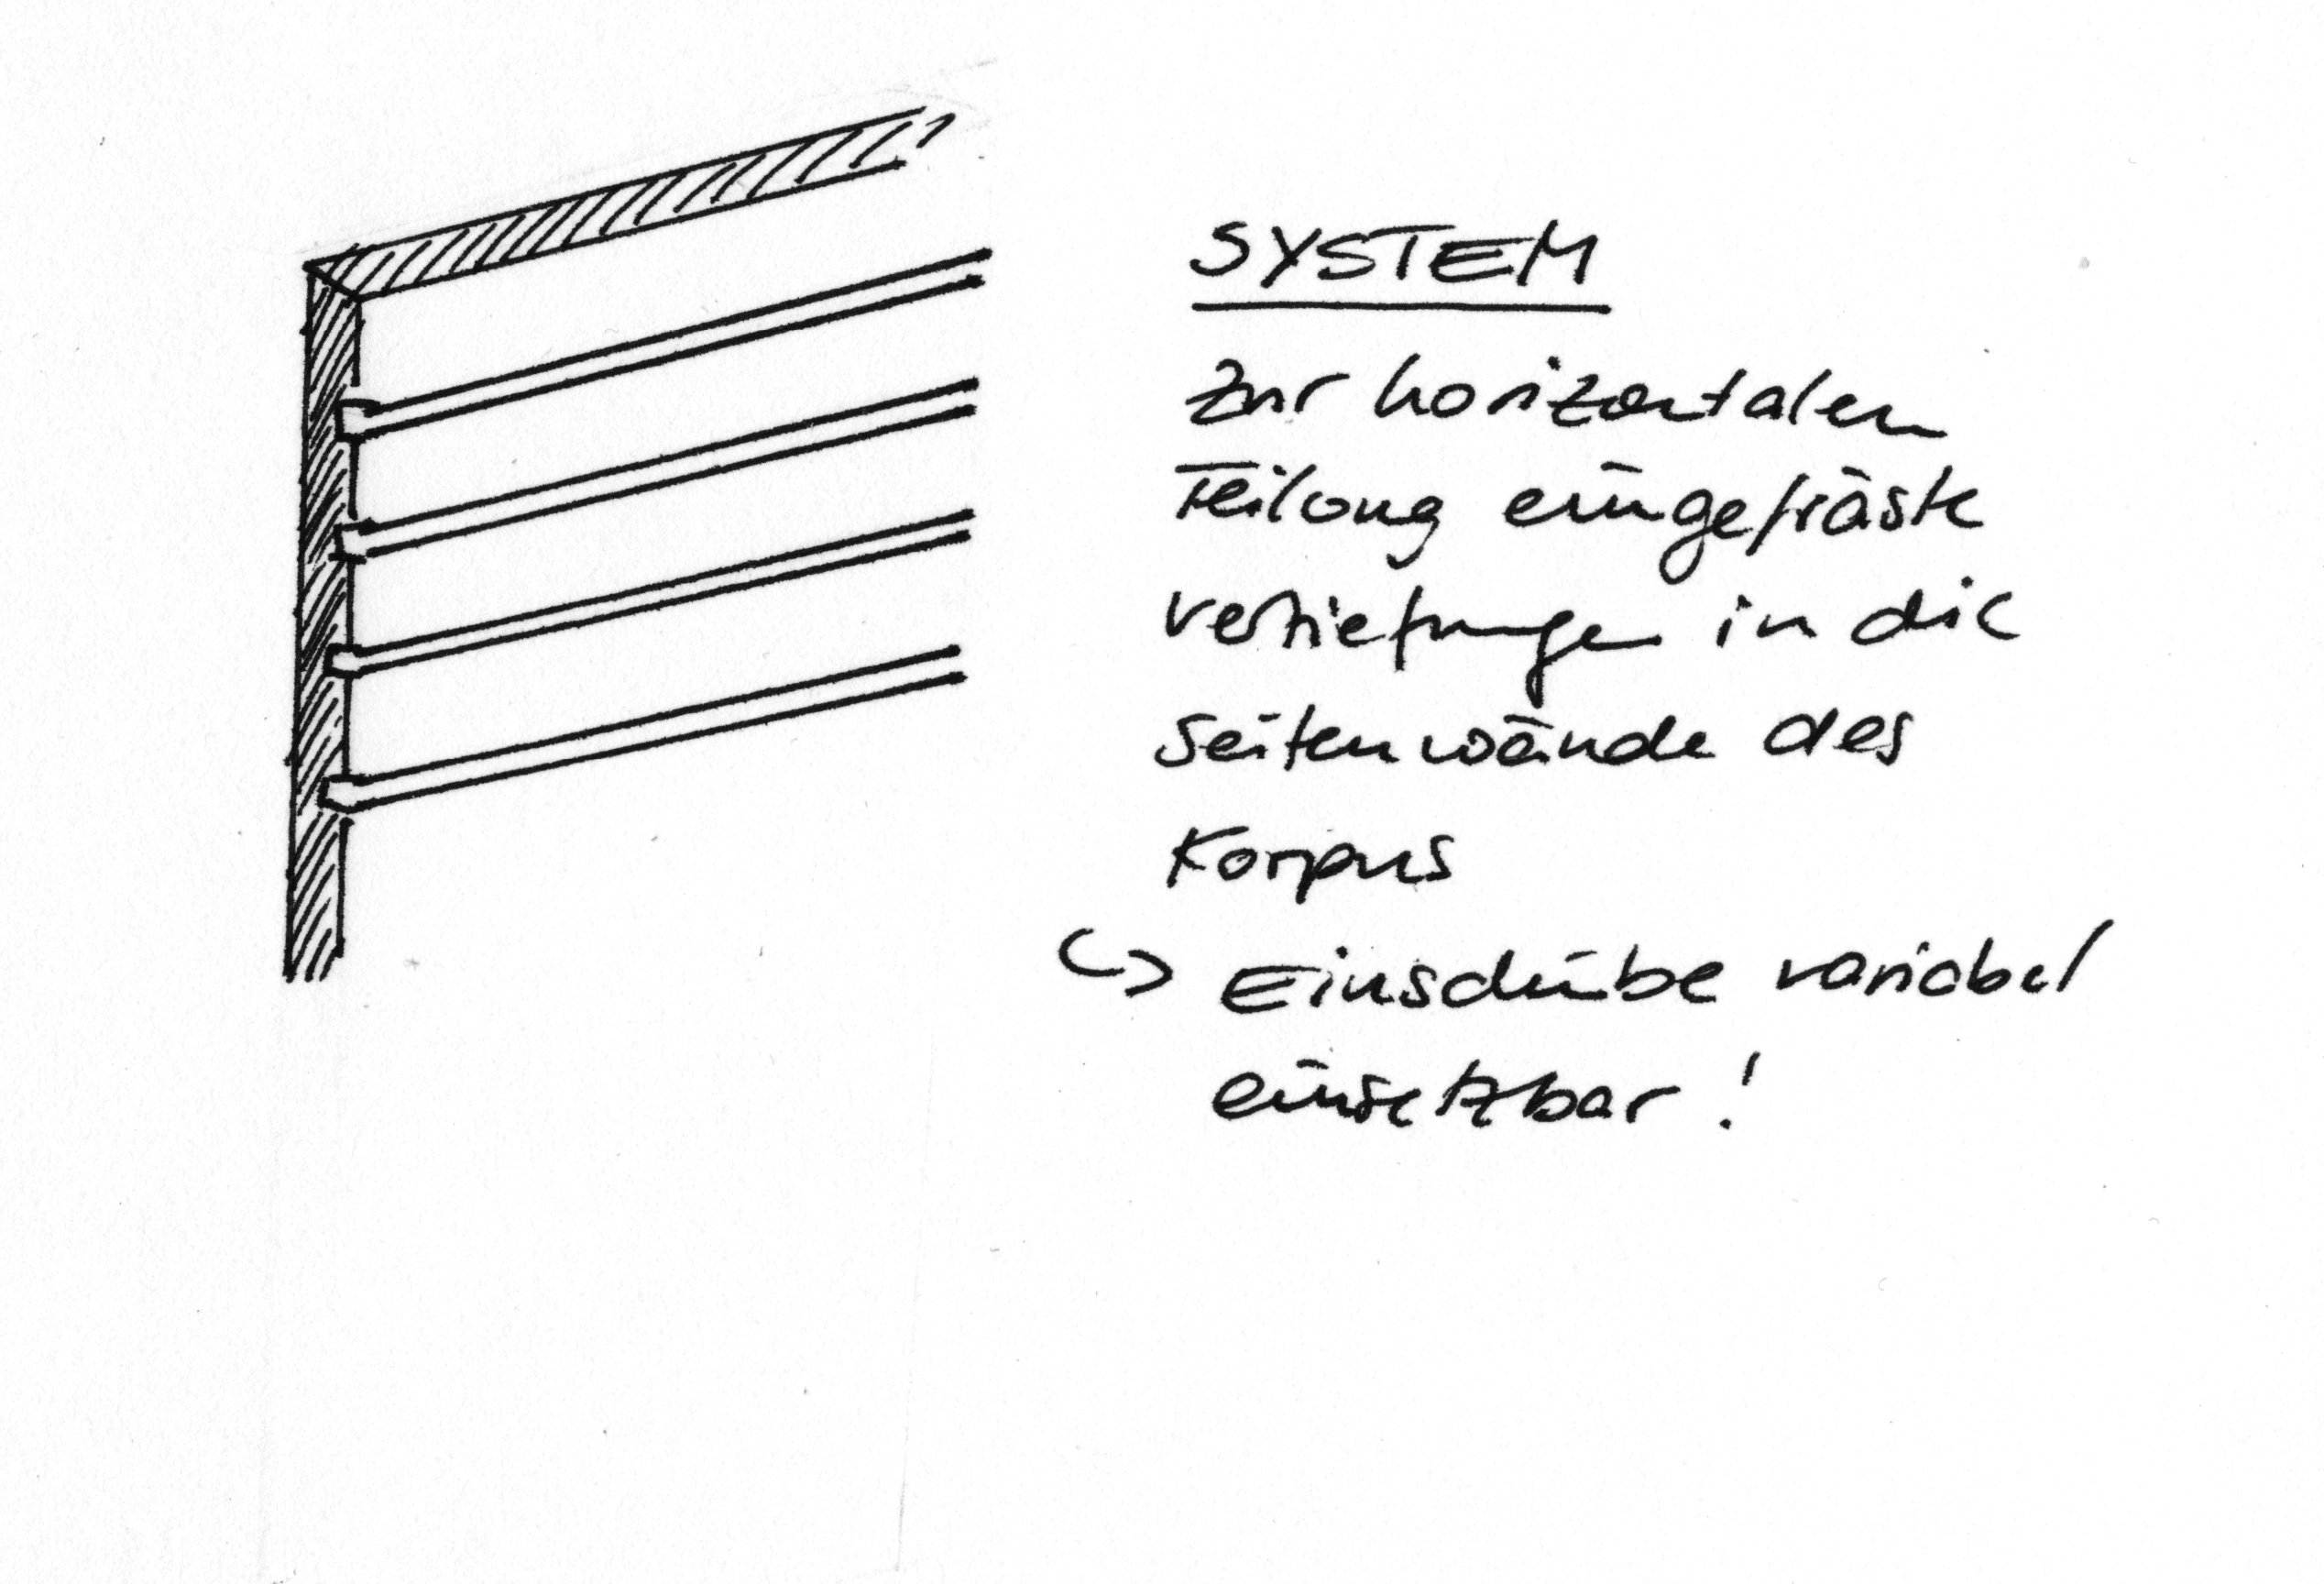 SYSTEM
zur horizontalen
Teilung eingefräste
Vertiefungen in die
Seitenwände des
Korpus
↪ Einschübe variabel
einsetzbar !